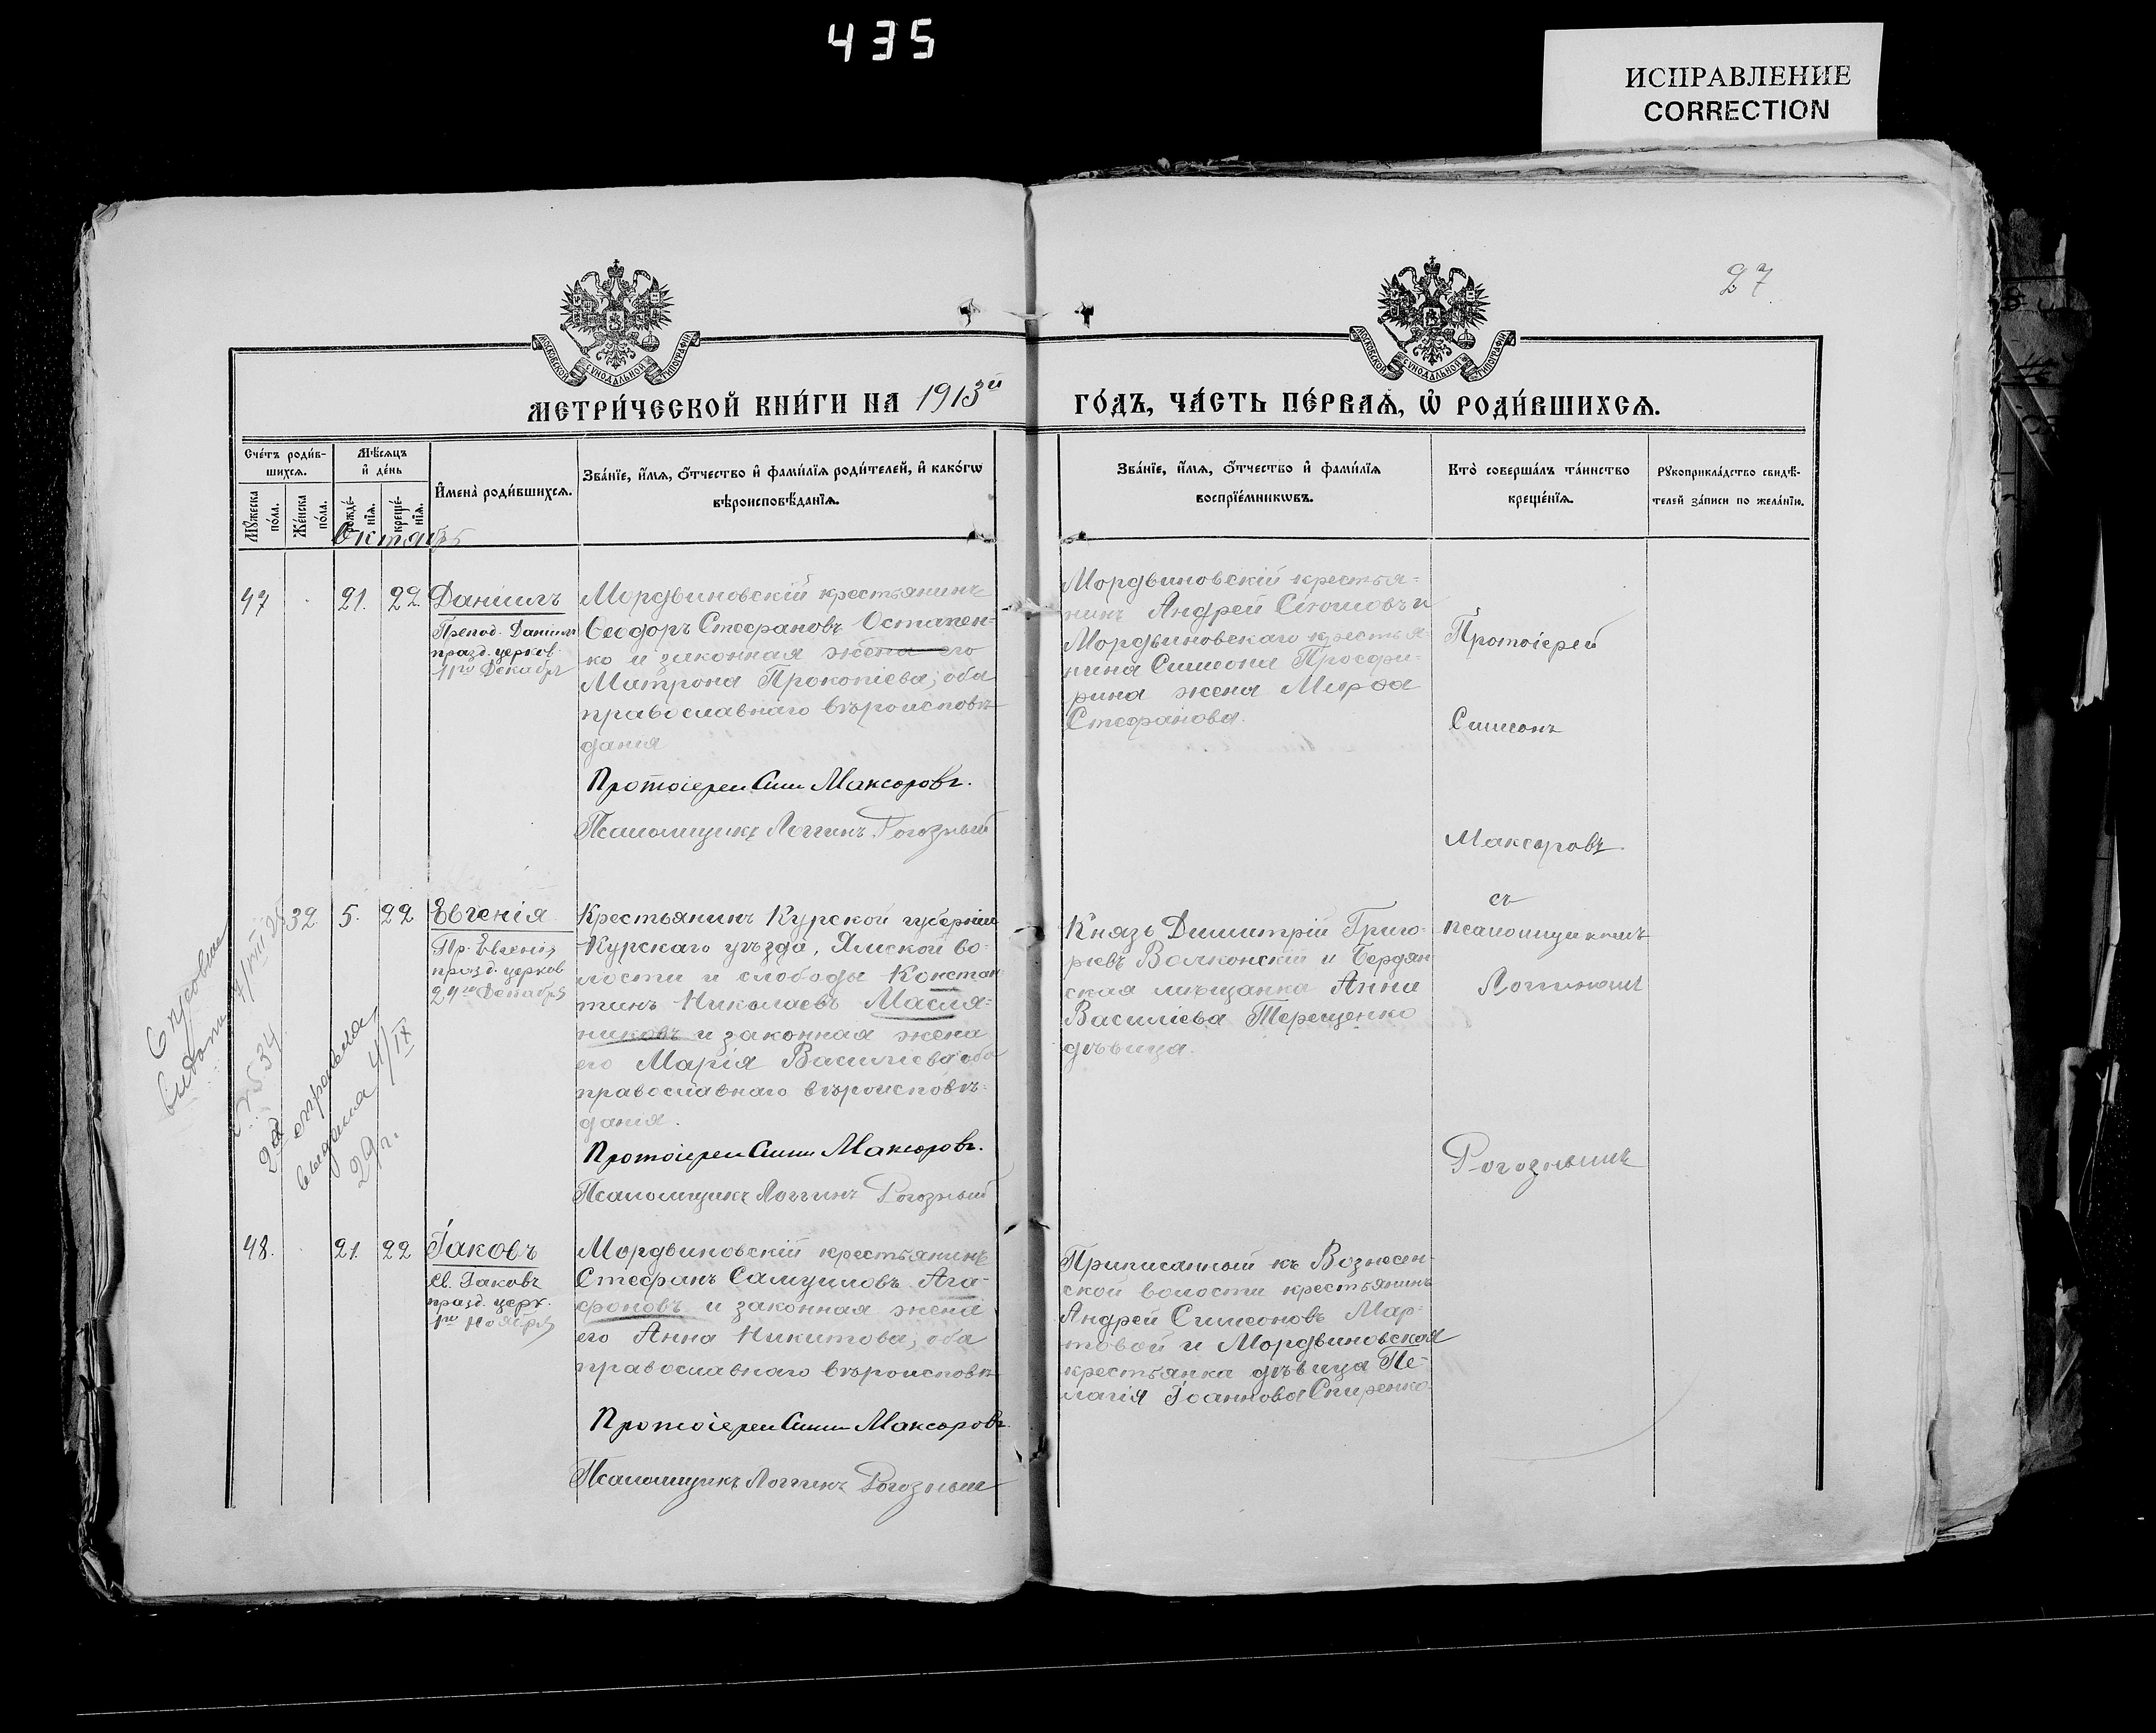 435
ИСПРАВЛЕНИЕ
CORRECTION
27
МОСКОВСКОЙ СѴНОДАЛЬНОЙ ТИПОГРАФІИ
МОСКОВСКОЙ СѴНОДАЛЬНОЙ ТИПОГРАФІИ
МЕТРИ́ЧЕСКОЙ КНИ́ГИ НА 1913й ГО́ДЪ, ЧА́СТЬ ПЕ́РВАѦ, Ѡ҆ РОДИ́ВШИХСѦ.
Сче́тъ роди́в-
шихсѧ.
Мꙋ́жеска по́ла.
Же́нска по́ла.
Мѣ́сѧцъ
и҆ де́нь
рожде́-
нїѧ.
креще́-
нїѧ.
И҆мена̀ роди́вшихсѧ.
Зва́нїе, и҆́мѧ, ѻ҆́тчество и҆ фами́лїѧ роди́телей, и҆ како́гѡ
вѣроисповѣ́данїѧ.
Зва́нїе, и҆́мѧ, ѻ҆́тчество и҆ фами́лїѧ
воспрїе́мникѡвъ.
Кто̀ соверша́лъ та́инство
креще́нїѧ.
Рꙋкоприкла́дство свидѣ́-
телей за́писи по жела́нїю.
Октябрь
47 21. 22. Даніилъ
Препод. Даніилъ
празд. церков.
11го Декабря
Мордвиновскій крестьянинъ
Ѳеодоръ Стефановъ Остапен-
ко и законная жена его
Матрона Прокопіева; оба
православнаго вѣроисповѣ
данія
Протоіерей Сим Максоровъ.
Псаломщикъ Логгинъ Рогозный
Мордвиновскій крестья-
нинъ Андрей и
Мордвиновскаго крестья-
нина Симеона
жена
Стефанова.
Протоіерей
Симеонъ
Максоровъ
съ
псаломщикомъ
Логгиномъ
Рогознымъ
32 5. 22 Евгенія
Пр. Евгенія
празд. церков
24го Декабря
Крестьянинъ Курской губерніи
Курскаго уѣзда, Ямской во-
лости и слободы Констан
тинъ Николаевъ Масля-
никовъ и законная жена
его Марія Васильева оба
православнаго вѣроисповѣ-
данія.
Протоіерей Сим Максоровъ.
Псаломщикъ Логгинъ Рогозный
Князь Димитрій Григо-
ріевъ Волконскій и Бердян
ская мѣщанка Анна
Василіева Терещенко
дѣвица.
2я
выдана 4/IX
29 г.
48. 21. 22 Іаковъ
Св. Іаковъ
празд. церк.
1го Ноября
Мордвиновскій крестьянинъ
Стефанъ Самуиловъ Ага-
фоновъ и законная жена
его Анна Никитова; оба
православнаго вѣроисповѣ
Протоіерей Сим Максоровъ.
Псаломщикъ Логгинъ Рогозный
Приписанный къ Вознесен-
ской волости крестьянинъ
Андрей Симеоновъ Мар-
товой и Мордвиновская
крестьянка дѣвица Пе-
лагія Іоаннова Спиренко